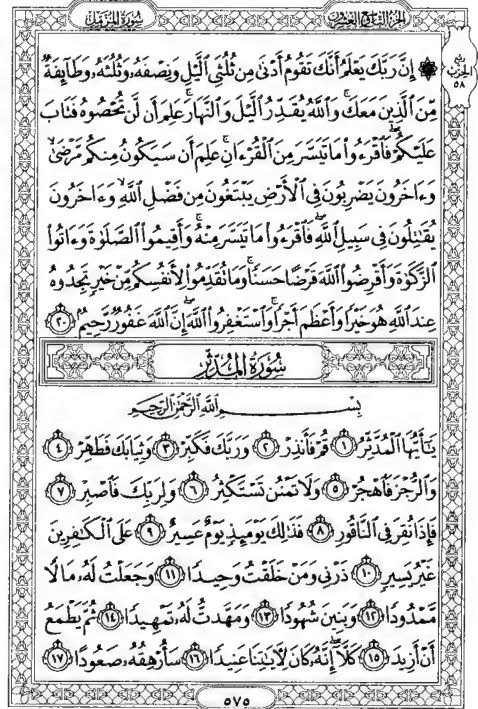 الجزء التاسع والعشرون
سورة المزمل
ربع
الحزب
٥٨
۞ إِنَّ رَبَّكَ يَعْلَمُ أَنَّكَ تَقُومُ أَدْنَىٰ مِن ثُلُثَىِ ٱلَّيْلِ وَنِصْفَهُۥ وَثُلُثَهُۥ وَطَآئِفَةٌ
مِّنَ ٱلَّذِينَ مَعَكَ ۚ وَٱللَّهُ يُقَدِّرُ ٱلَّيْلَ وَٱلنَّهَارَ ۚ عَلِمَ أَن لَّن تُحْصُوهُ فَتَابَ
عَلَيْكُمْ ۖ فَٱقْرَءُوا۟ مَا تَيَسَّرَ مِنَ ٱلْقُرْءَانِ ۚ عَلِمَ أَن سَيَكُونُ مِنكُم مَّرْضَىٰ ۙ
وَءَاخَرُونَ يَضْرِبُونَ فِى ٱلْأَرْضِ يَبْتَغُونَ مِن فَضْلِ ٱللَّهِ ۙ وَءَاخَرُونَ
يُقَٰتِلُونَ فِى سَبِيلِ ٱللَّهِ ۖ فَٱقْرَءُوا۟ مَا تَيَسَّرَ مِنْهُ ۚ وَأَقِيمُوا۟ ٱلصَّلَوٰةَ وَءَاتُوا۟
ٱلزَّكَوٰةَ وَأَقْرِضُوا۟ ٱللَّهَ قَرْضًا حَسَنًا ۚ وَمَا تُقَدِّمُوا۟ لِأَنفُسِكُم مِّنْ خَيْرٍ تَجِدُوهُ
عِندَ ٱللَّهِ هُوَ خَيْرًا وَأَعْظَمَ أَجْرًا ۚ وَٱسْتَغْفِرُوا۟ ٱللَّهَ ۖ إِنَّ ٱللَّهَ غَفُورٌ رَّحِيمٌۢ ٢٠
سُورَةُ المُدَّثِّرِ
بِسْمِ ٱللَّهِ ٱلرَّحْمَٰنِ ٱلرَّحِيمِ
يَٰٓأَيُّهَا ٱلْمُدَّثِّرُ ١ قُمْ فَأَنذِرْ ٢ وَرَبَّكَ فَكَبِّرْ ٣ وَثِيَابَكَ فَطَهِّرْ ٤
وَٱلرُّجْزَ فَٱهْجُرْ ٥ وَلَا تَمْنُن تَسْتَكْثِرُ ٦ وَلِرَبِّكَ فَٱصْبِرْ ٧
فَإِذَا نُقِرَ فِى ٱلنَّاقُورِ ٨ فَذَٰلِكَ يَوْمَئِذٍ يَوْمٌ عَسِيرٌ ٩ عَلَى ٱلْكَٰفِرِينَ
غَيْرُ يَسِيرٍ ١٠ ذَرْنِى وَمَنْ خَلَقْتُ وَحِيدًا ١١ وَجَعَلْتُ لَهُۥ مَالًا
مَّمْدُودًا ١٢ وَبَنِينَ شُهُودًا ١٣ وَمَهَّدتُّ لَهُۥ تَمْهِيدًا ١٤ ثُمَّ يَطْمَعُ
أَنْ أَزِيدَ ١٥ كَلَّآ ۖ إِنَّهُۥ كَانَ لِءَايَٰتِنَا عَنِيدًا ١٦ سَأُرْهِقُهُۥ صَعُودًا ١٧
٥٧٥